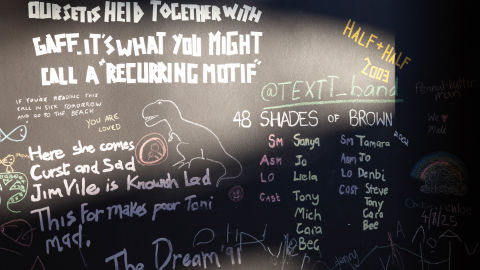 OUR SET IS HELD TOGETHER WITH
GAFF. IT'S WHAT YOU MIGHT
CALL A "RECURRING MOTIF"
HALF + HALF
2003
IF YOU'RE READING THIS
CALL IN SICK TOMORROW
AND GO TO THE BEACH
YOU ARE
LOVED
@TEXTT_band
Peanut butter
We ❤
48 SHADES OF BROWN
Here she comes
Curst and Sad
Jim Vile is Knowish Lad
This for makes poor Toni
mad.
SM Sanya
ASM Jo
LO Liela
CAST Tony
Mich
Cara
Bec
SM Tamara
ASM Jo
LO Denbi
CAST Steve
Tony
Cara
Bee
The Dream '91
Harry